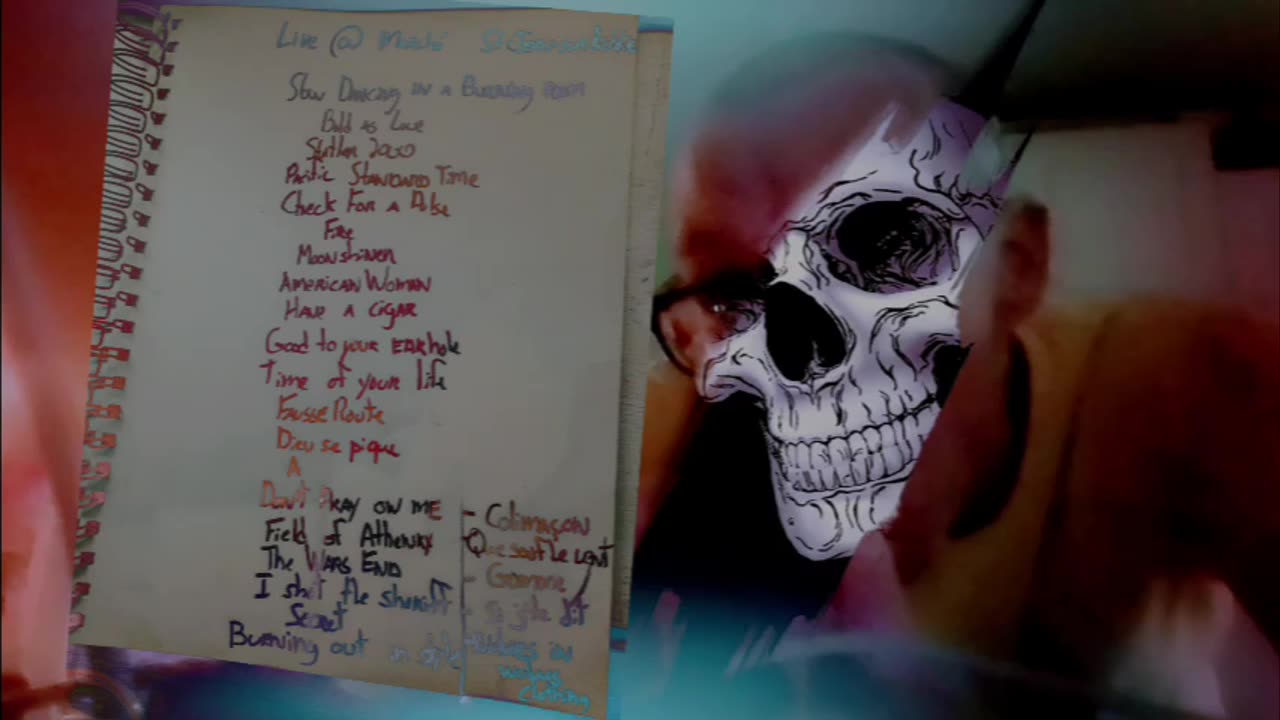 Live @
Slow Dancing IN A Burning ROOM
Bold as Love
2000
Pacific STANDARD Time
Check For A Pulse
Fire
Moonshiner
American Woman
HAVE A CIGAR
Good to your EARhole
Time of your life
Fausse Route
Dieu se pique
A
Don't PRAY ON ME
Field of Athenry
The WARS END
I shot the sheriff
Secret
Burning out in style
- Colimaçon
- Que souffle le vent
- Gomme
- Si je te dit
- Wolves in
wolves
clothing